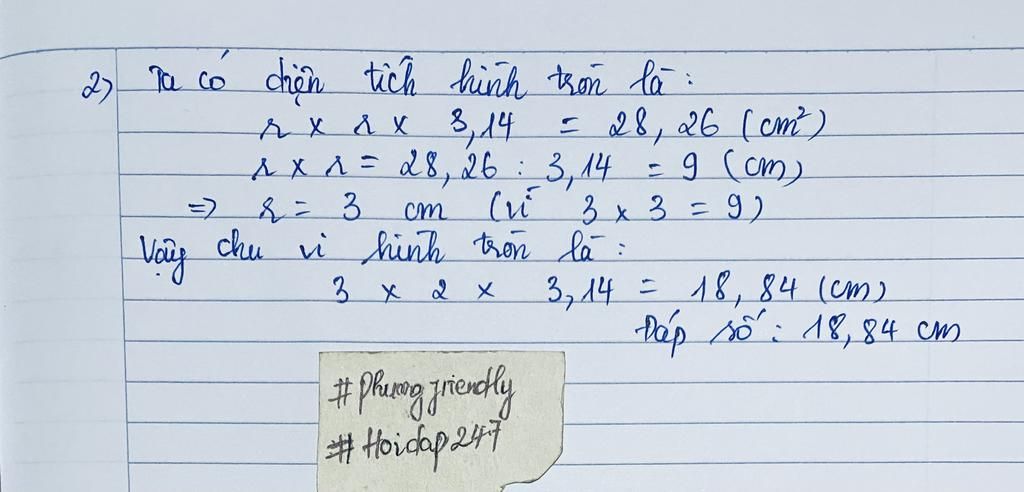 2) Ta có diện tích hình tròn là:
r x r x 3,14 = 28,26 (cm²)
r x r = 28,26 : 3,14 = 9 (cm)
=> r = 3 cm (vì 3 x 3 = 9)
Vậy chu vi hình tròn là:
3 x 2 x 3,14 = 18,84 (cm)
Đáp số: 18,84 cm
# Phuongfriendly
# Hoidap247